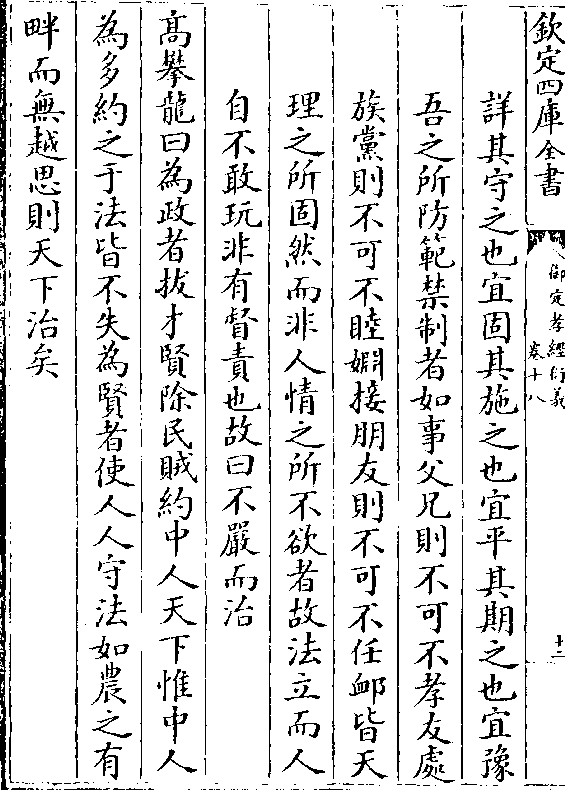 欽定四庫全書
御定孝經衍義
卷十八
十二
詳其守之也宜固其施之也宜平其期之也宜豫
吾之所防範禁制者如事父兄則不可不孝友處
族黨則不可不睦婣接朋友則不可不任䘏皆天
理之所固然而非人情之所不欲者故法立而人
自不敢玩非有督責也故曰不嚴而治
髙攀龍曰為政者拔才賢除民賊約中人天下惟中人
為多約之于法皆不失為賢者使人人守法如農之有
畔而無越思則天下治矣